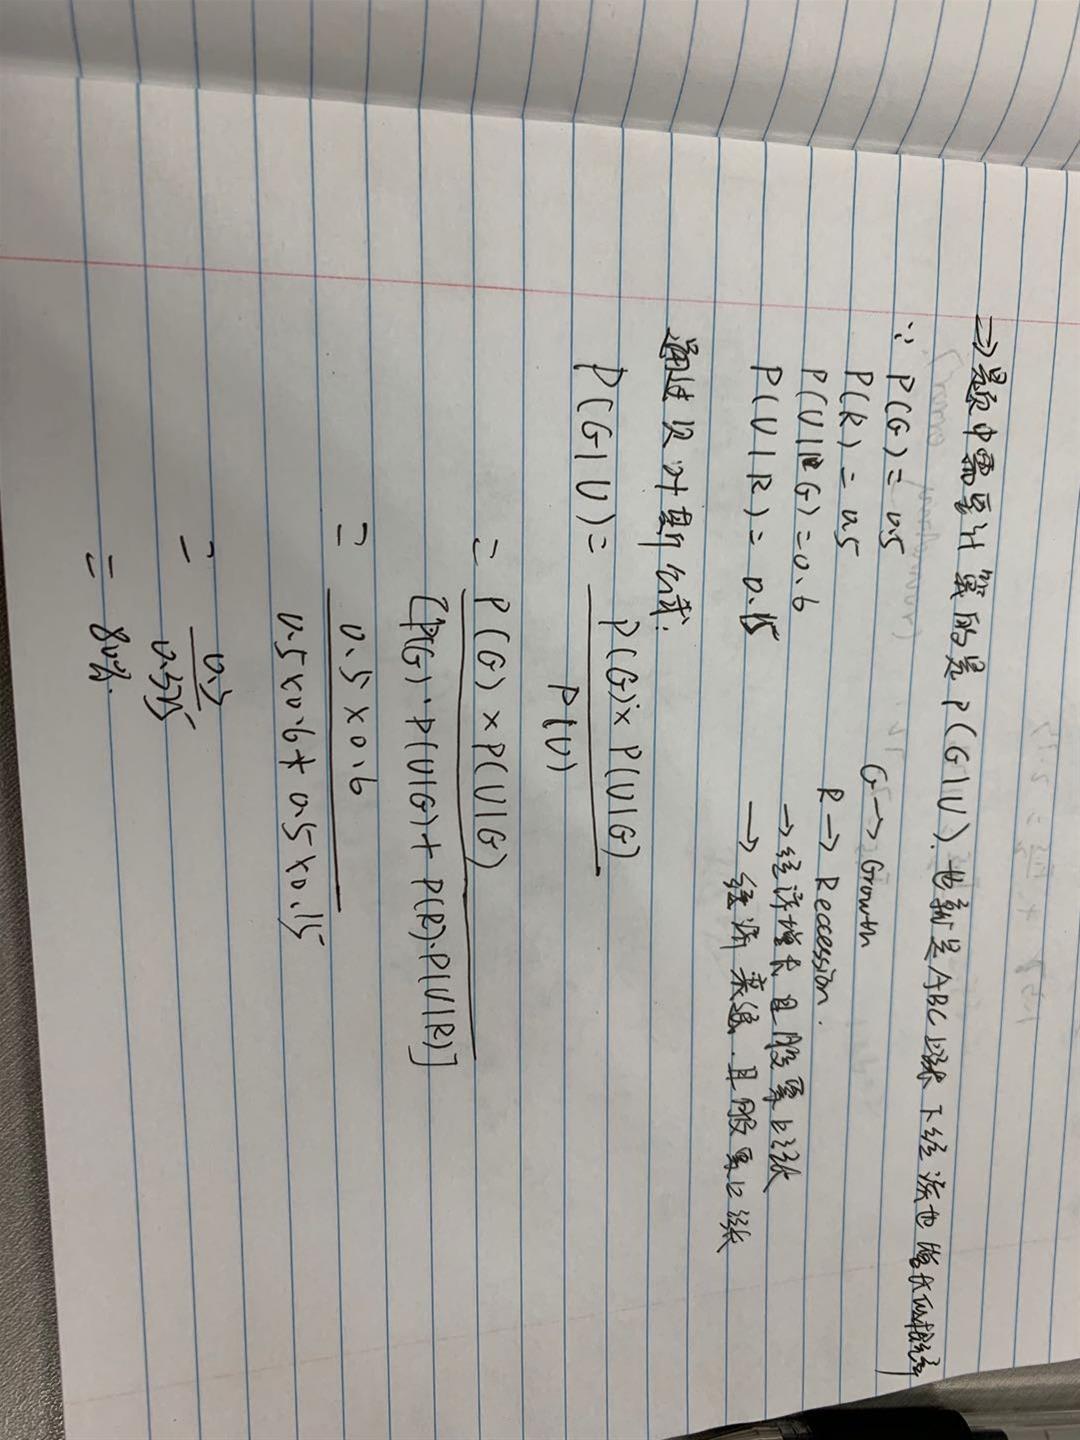 → 题中需要计算的是 P(G|U). 也就是ABC上涨下经济也增长的概率
∵ P(G) = 0.5 G → Growth
P(R) = 0.5 R → Recession.
P(U|G) = 0.6 → 经济增长且股票上涨
P(U|R) = 0.15 → 经济衰退.且股票上涨
通过贝叶斯公式:
P(G|U) = P(G) × P(U|G)
P(U)
= P(G) × P(U|G)
[P(G)·P(U|G) + P(R)·P(U|R)]
= 0.5 × 0.6
0.5×0.6 + 0.5×0.15
= 0.3
0.375
= 80%.